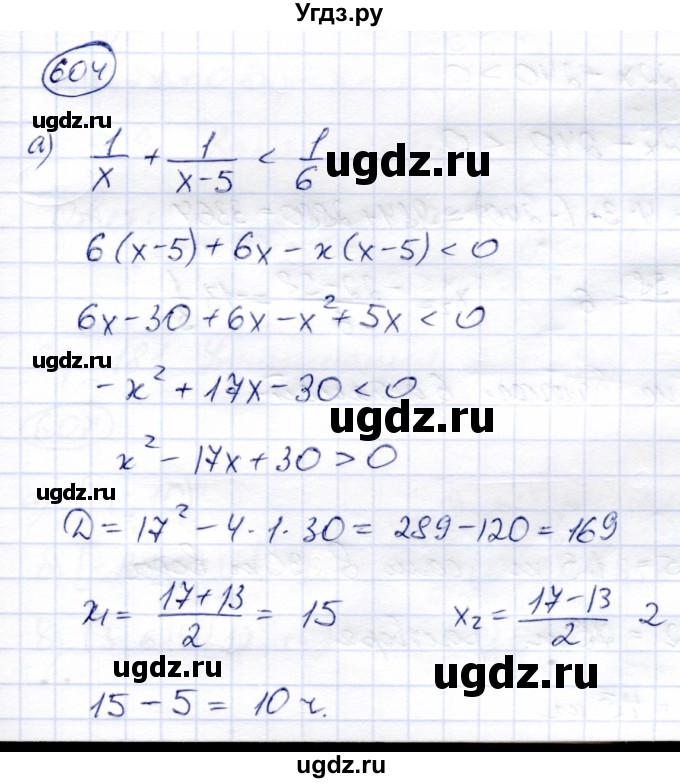 Угдз.ру
604
ugdz.ru
а) 1/x + 1/(x-5) < 1/6
ugdz.ru
6(x-5) + 6x - x(x-5) < 0
6x - 30 + 6x - x² + 5x < 0
ugdz.ru
- x² + 17x - 30 < 0
ugdz.ru
x² - 17x + 30 > 0
ugdz.ru
ugdz.ru
Д = 17² - 4·1·30 = 289 - 120 = 169
x₁ = (17+13)/2 = 15 x₂ = (17-13)/2 2
ugdz.ru
ugdz.ru
15 - 5 = 10 ч.
ugdz.ru